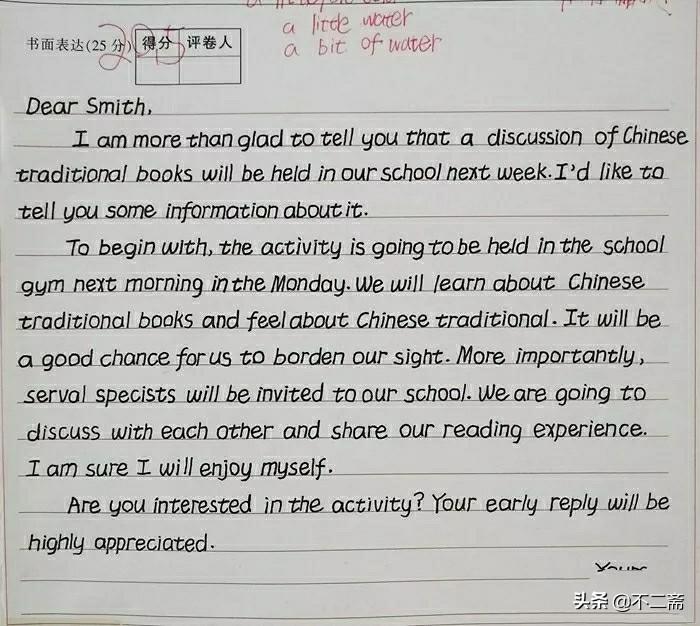 a little water
书面表达(25分) 得分 评卷人
a bit of water
Dear Smith,
I am more than glad to tell you that a discussion of Chinese
traditional books will be held in our school next week. I'd like to
tell you some information about it.
To begin with, the activity is going to be held in the school
gym next morning in the Monday. We will learn about Chinese
traditional books and feel about Chinese traditional. It will be
a good chance for us to borden our sight. More importantly,
serval specists will be invited to our school. We are going to
discuss with each other and share our reading experience.
I am sure I will enjoy myself.
Are you interested in the activity? Your early reply will be
highly appreciated.
头条 @不二斋